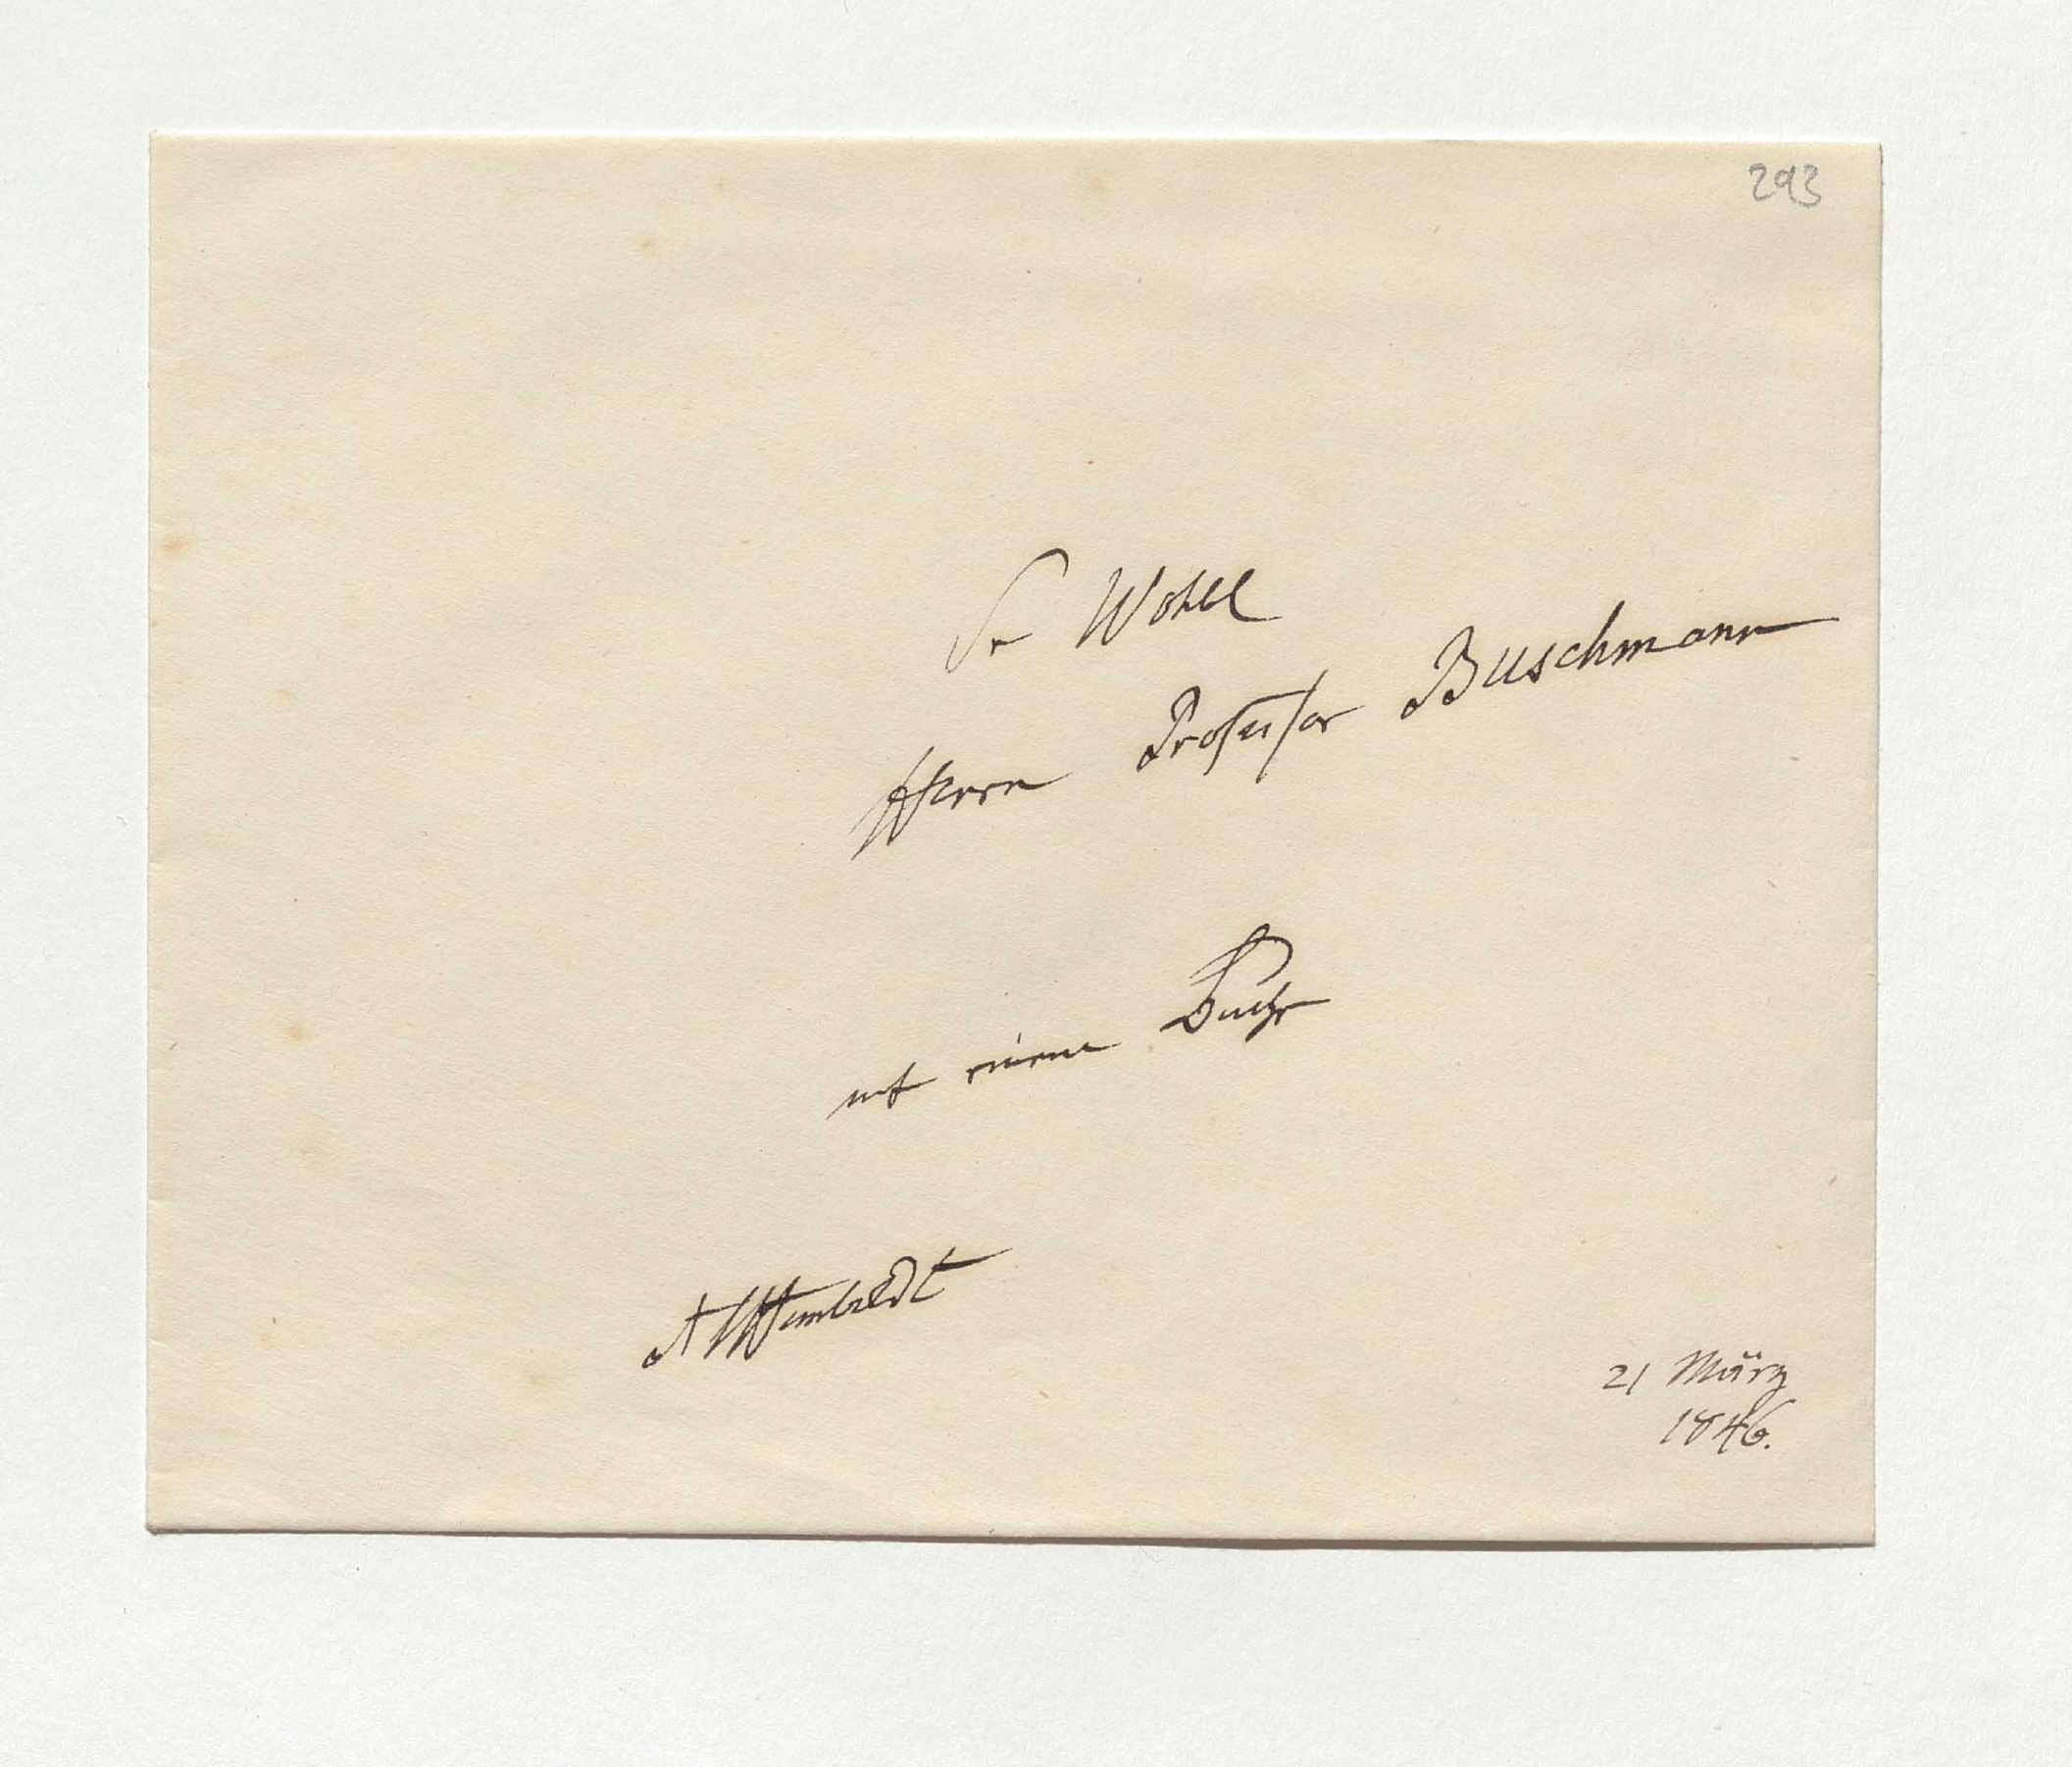 293
Sr Wohll
Herrn Professor Buschmann
mit einem Buche
AlHumboldt
21 März
1846.